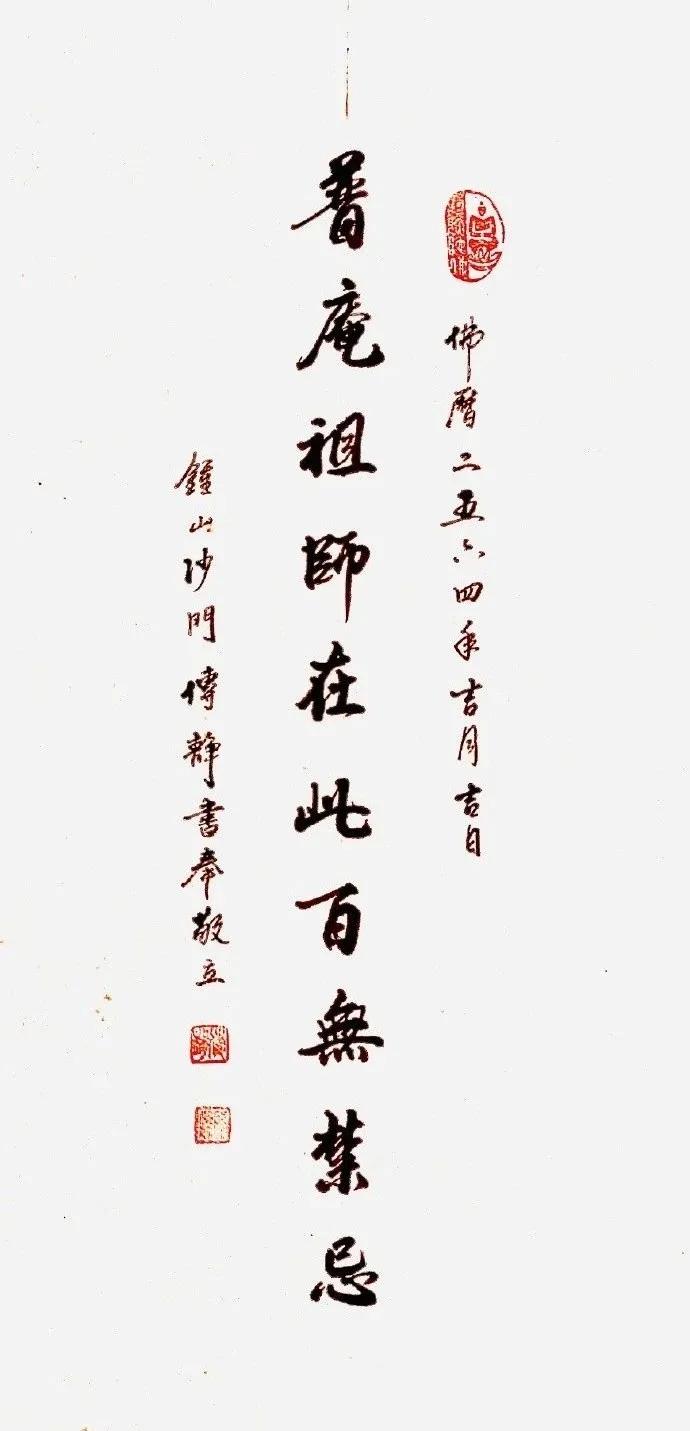 佛曆二五六四年吉月吉日
普庵祖師在此百無禁忌
鍾山沙門傳靜書奉敬立